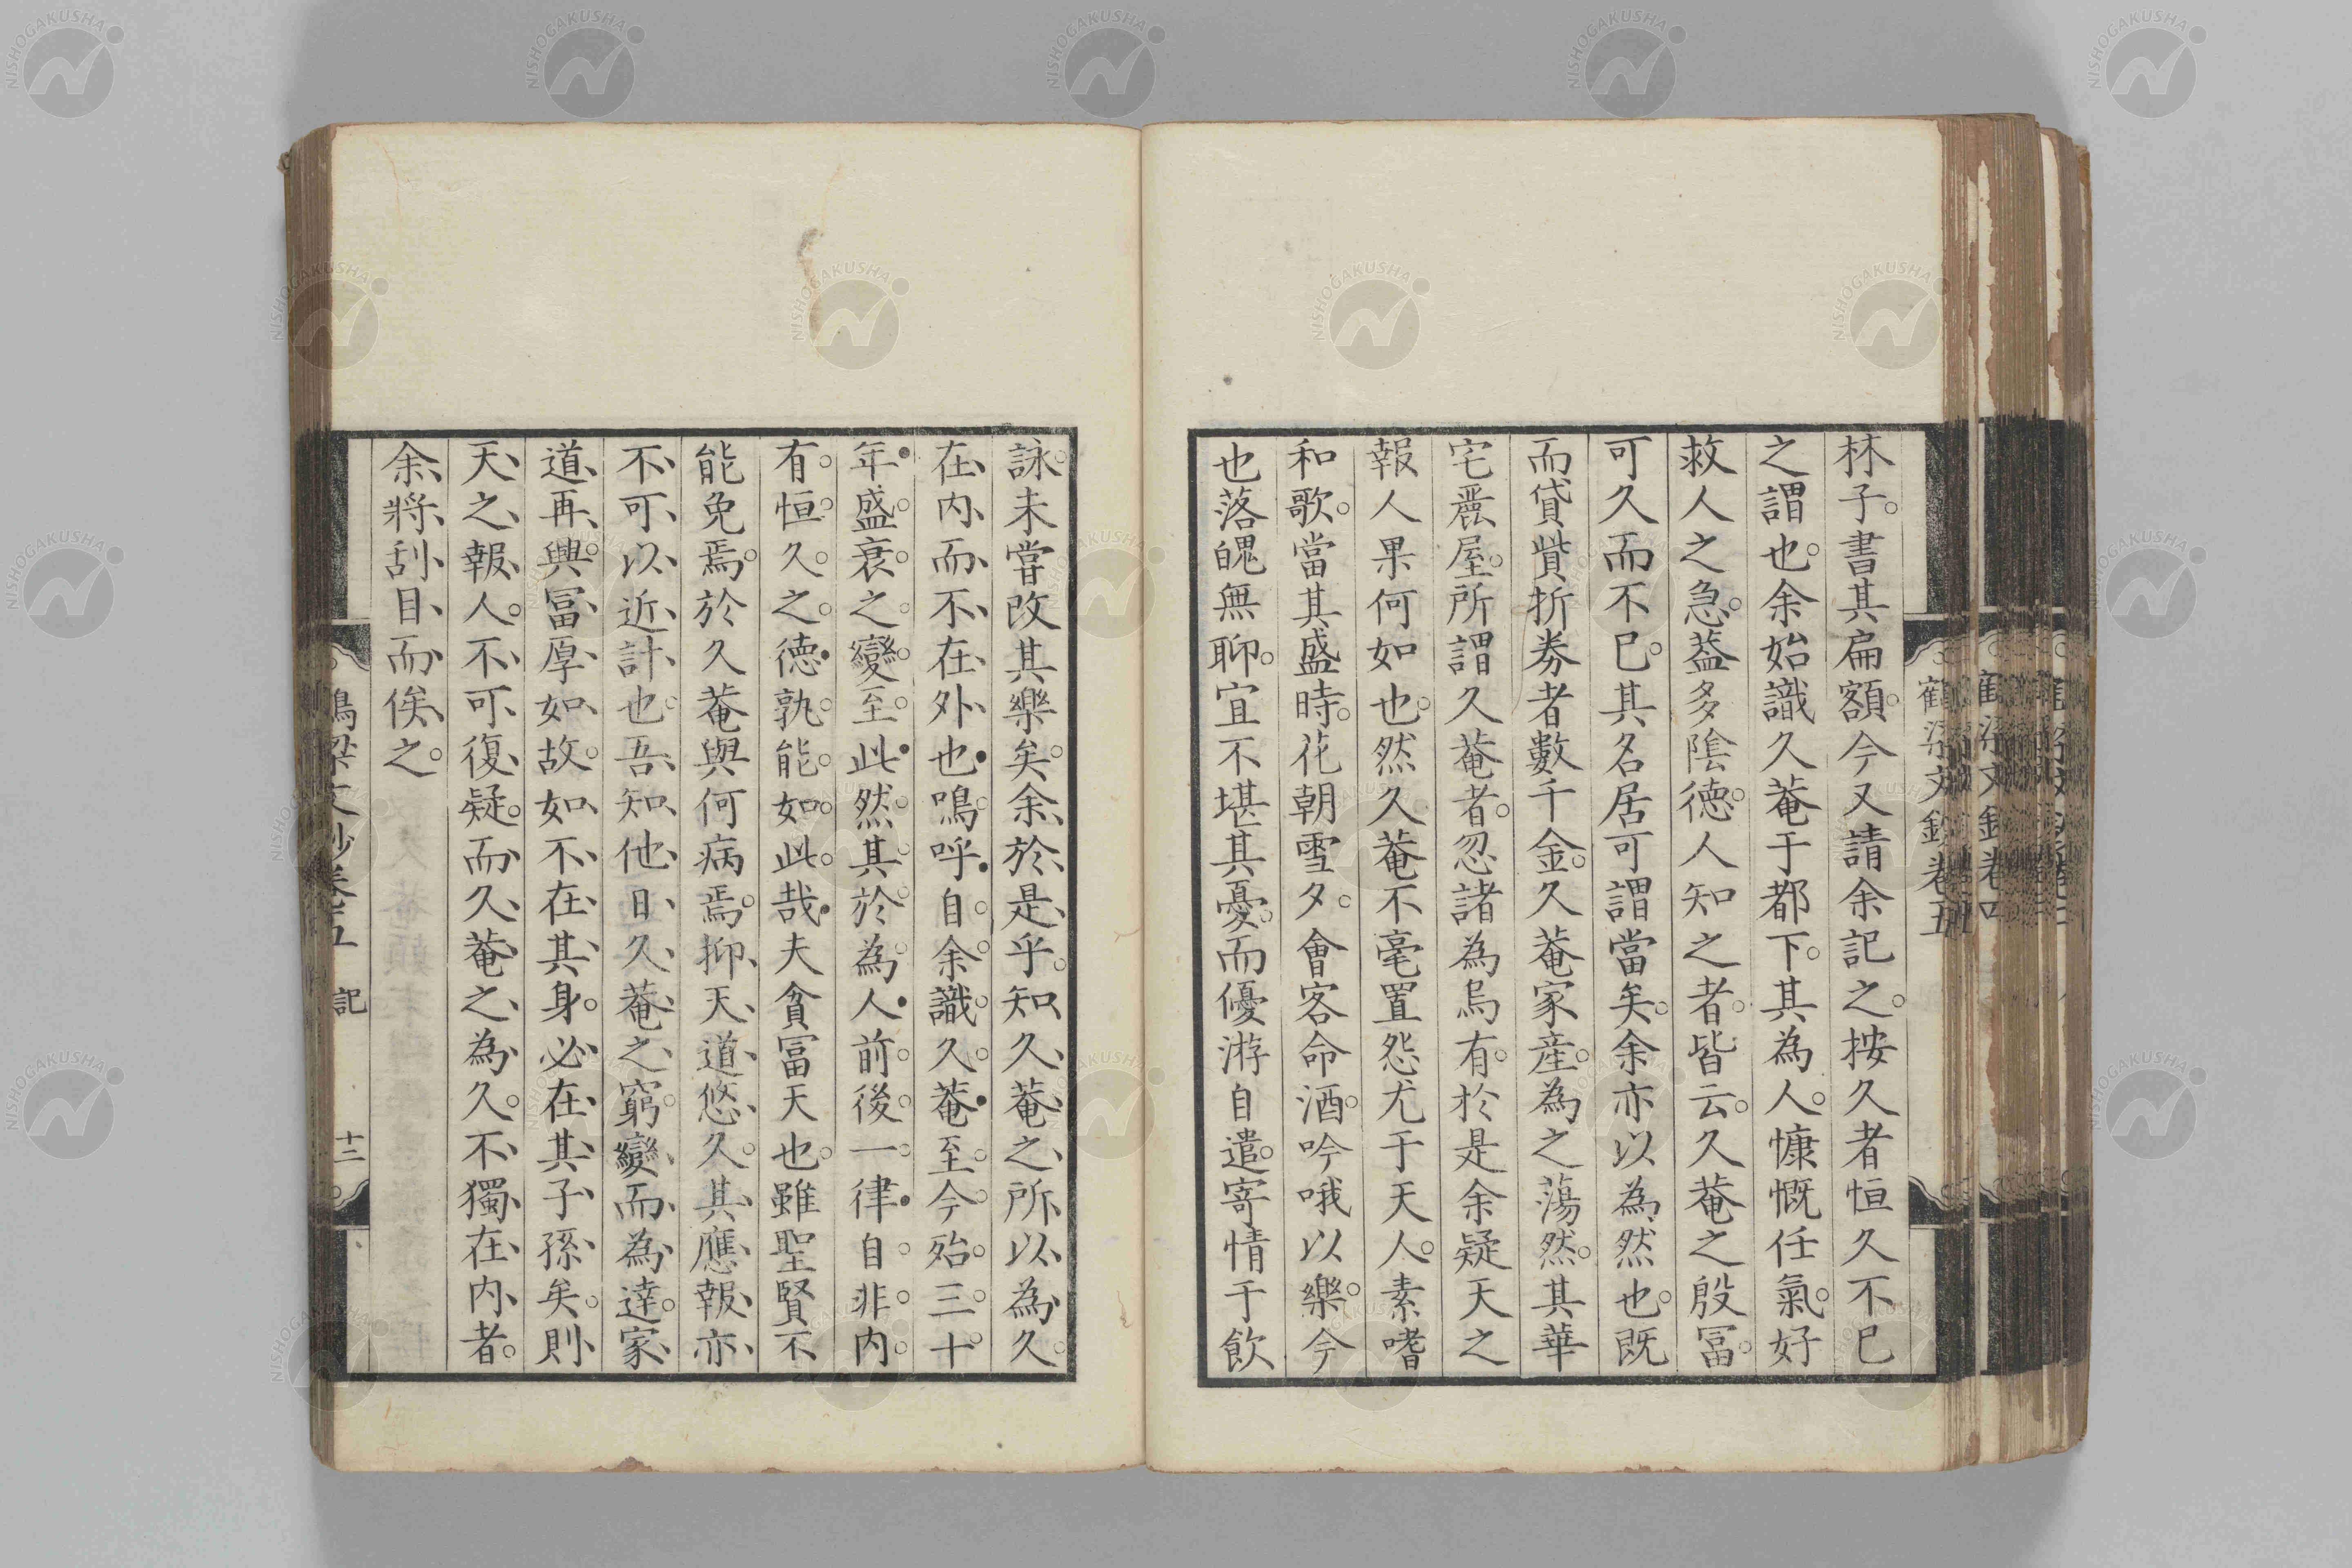 林子。書其扁額。今又請余記之。按久者恒久不已
之謂也。余始識久菴于都下。其為人。慷慨任氣。好
救人之急。葢多陰德。人知之者。皆云。久菴之殷冨。
可久而不已。其名居可謂當矣。余亦以為然也。既
而貸貲折券者數千金。久菴家産。為之蕩然。其華
宅麗屋。所謂久菴者。忽諸為烏有。於是余疑天之
報人果何如也。然久菴不毫置怨尤于天人。素嗜
和歌。當其盛時。花朝雪夕。會客命酒。吟哦以樂。今
也落魄無聊。宜不堪其憂。而優游自遣。寄情于飮
詠。未嘗改其樂矣。余於是乎。知久菴之所以為久。
在内而不在外也。嗚呼。自余識久菴。至今殆三十
年。盛衰之變至此。然其於為人。前後一律。自非内
有恒久之德。孰能如此哉。夫貧冨天也。雖聖賢不
能免焉。於久菴與何病焉。抑天道悠久。其應報亦
不可以近計也。吾知他日久菴之窮。變而為達。家
道再興。冨厚如故。如不在其身。必在其子孫矣。則
天之報人。不可復疑。而久菴之為久。不獨在内者。
余將刮目而俟之。
鶴梁文鈔卷五 記 十三
鶴梁文鈔卷五